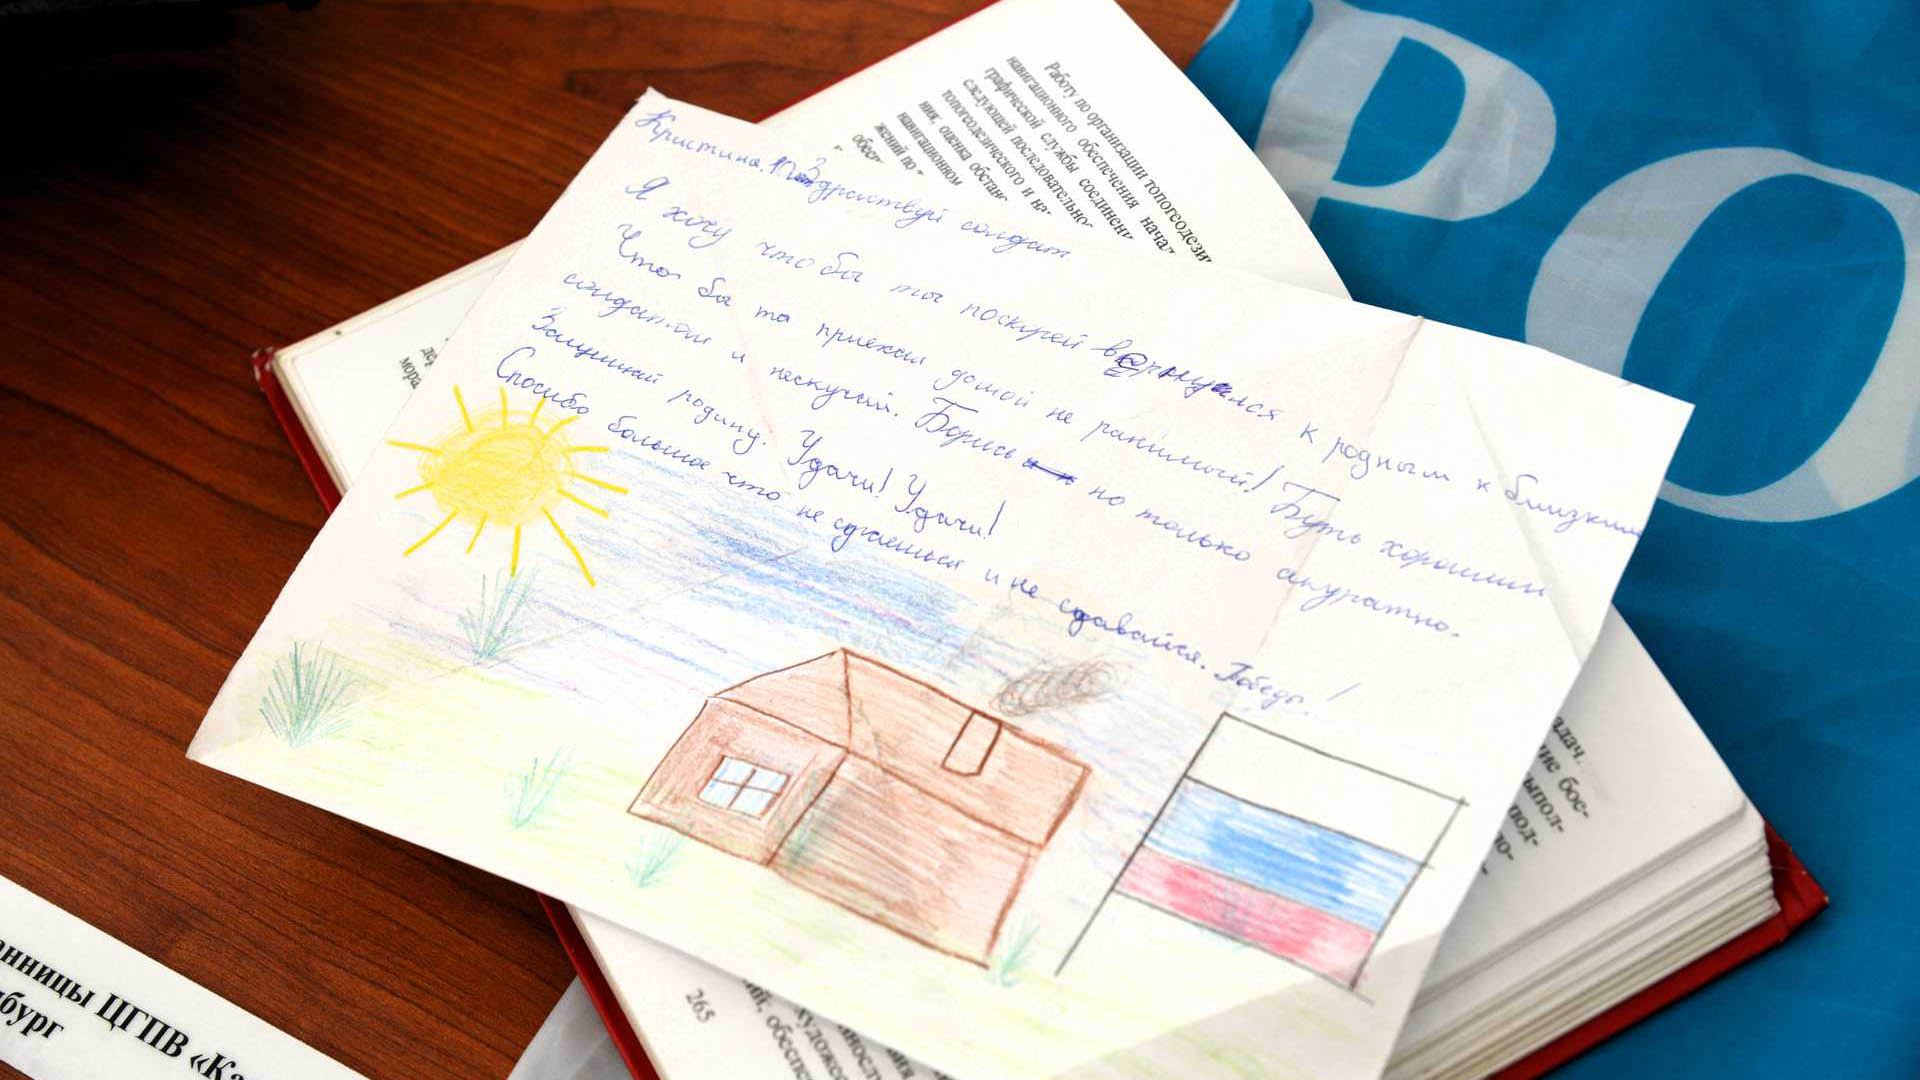 Кристина. Здраствуй солдат
Я хочу что бы ты поскорей вернулся к родным к близким
Что бы ты приехал домой не ранимый! Буть хорошим
солдатом и нескучай. Борись но только акуратно.
Защищай родину. Удачи! Удачи!
Спосибо большое что не сдаешься и не сдавайся. Победа!
Работу по организации топогеодези
навигационного обеспечения начал
графической службы соединени
следующей последовательно
топогеодезического и на
ния, оценка обстан
навигационном
жений по
обесп
дер
мора
РО
задач.
ние бое-
выпол-
под-
ло-
265
анницы ЦГПВ «Ка
бург